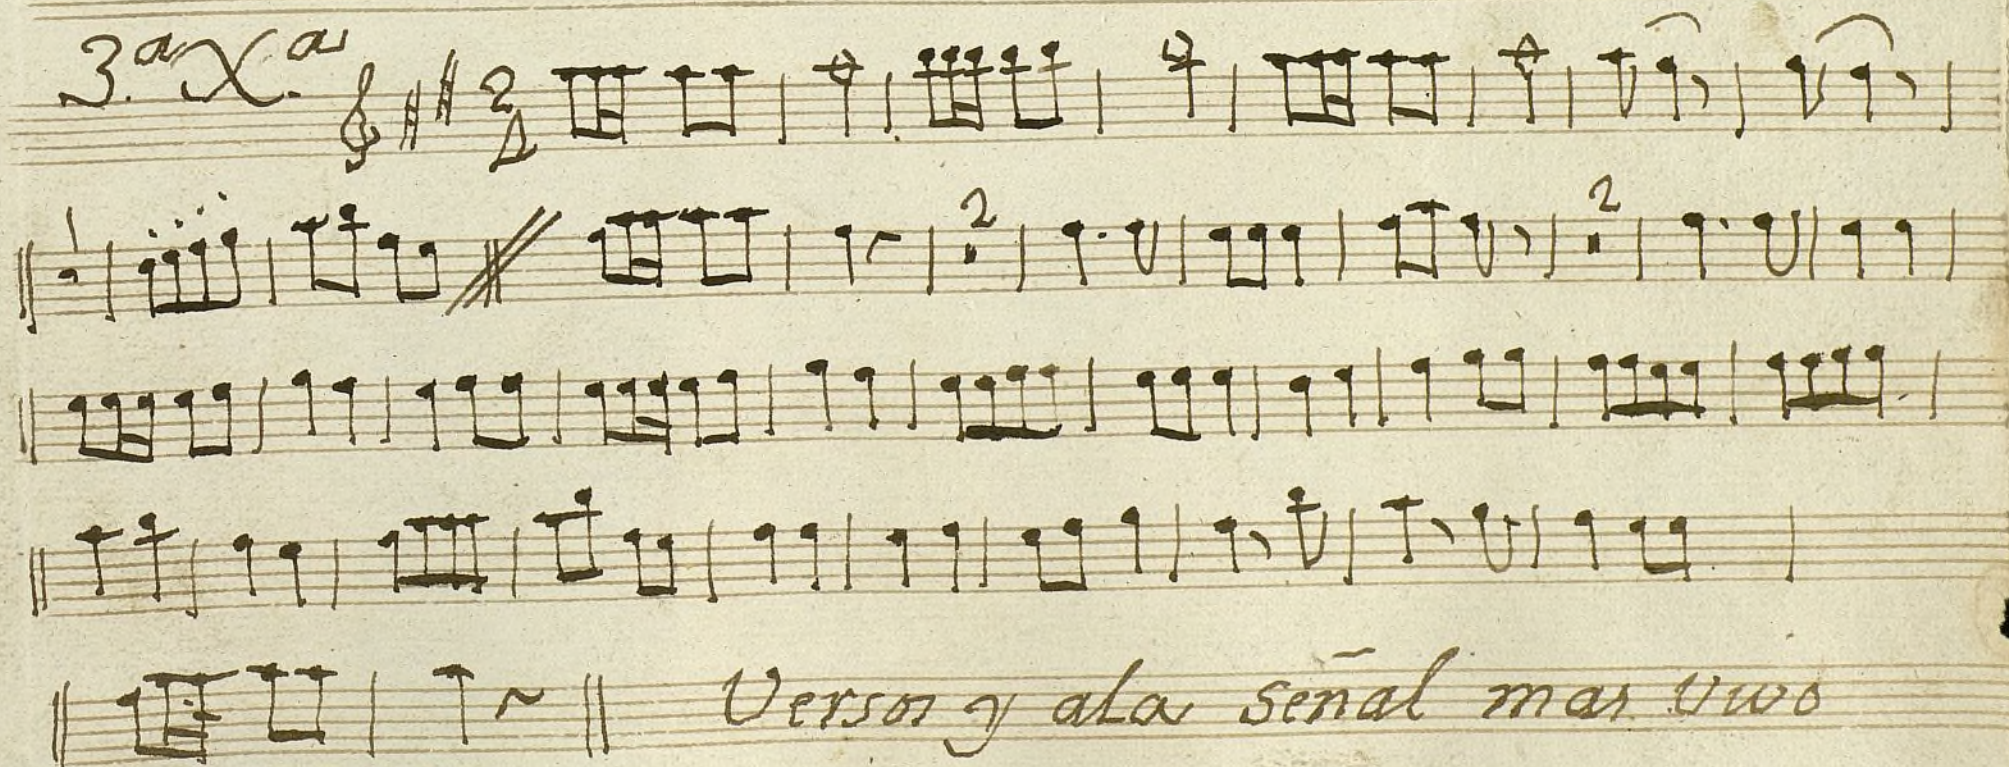 3.ª X.ª
2
4
2
2
Versos y ala señal mas vivo